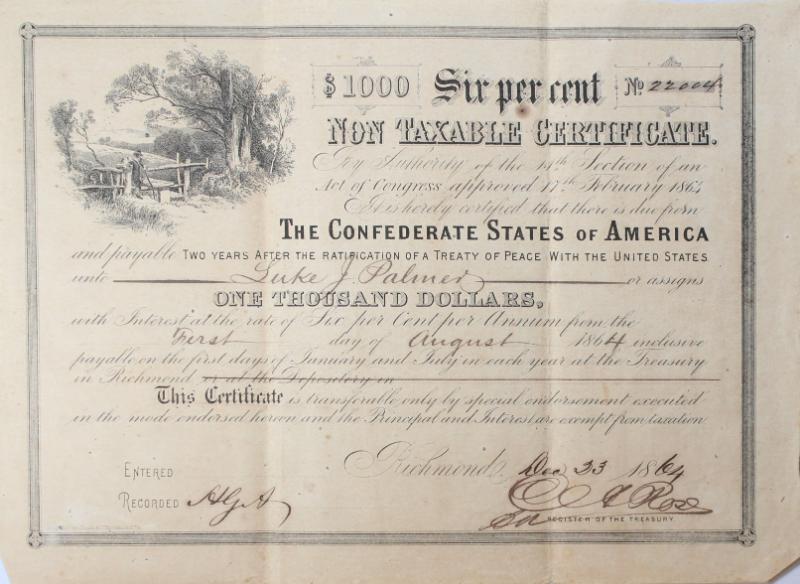 $1000 Six per cent No 22004
NON TAXABLE CERTIFICATE.
By Authority of the 14th Section of an
Act of Congress approved 17th February 1864
It is hereby certified that there is due from
THE CONFEDERATE STATES OF AMERICA
and payable TWO YEARS AFTER THE RATIFICATION OF A TREATY OF PEACE WITH THE UNITED STATES
unto Luke J. Palmer or assigns
ONE THOUSAND DOLLARS,
with Interest at the rate of Six per Cent per Annum from the
First day of August 1864 inclusive
payable on the first days of January and July in each year at the Treasury
in Richmond or at the Depository in
This Certificate is transferable only by special endorsement executed
in the mode endorsed hereon and the Principal and Interest are exempt from taxation
Richmond, Dec 23 1864
ENTERED
RECORDED
Rose
REGISTER OF THE TREASURY